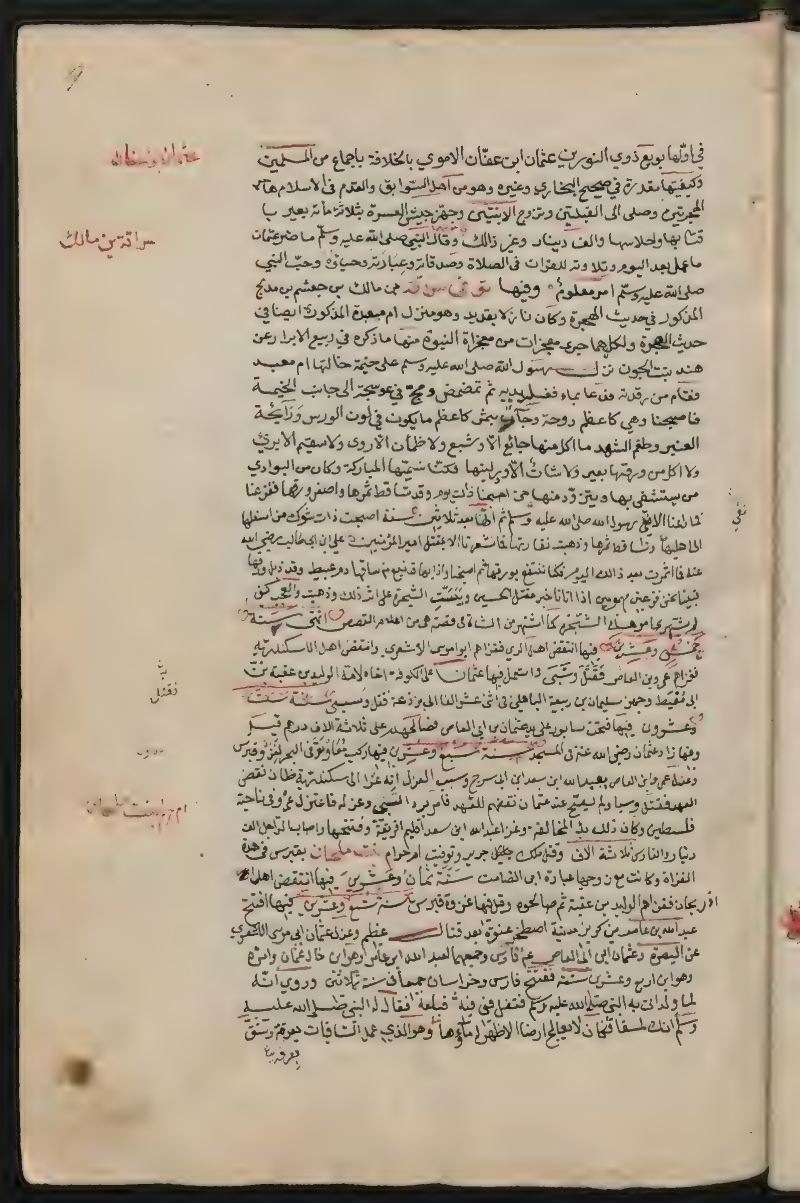 عثمان بن عفان
في اولها بويع ذوي النورين عثمان ابن عفان الاموي بالخلافة باجماع من المسلمين
وكيفيتها مقدرة في صحيح البخاري وغيره وهو من اهل السوابق والقدم في الاسلام هاجر
الهجرتين وصلى الى القبلتين وتزوج الابنتين وجهز جيش العسرة بثلاثة مائة بعير با
سراقة بن مالك
قتابها واحلاسها والف دينار وغير ذالك وقال النبي صلى الله عليه وسلم ما ضر عثمان
ما عمل بعد اليوم وتلاوته للقران في الصلاة وصدقاته وعبادته وحياؤه وحب النبي
صلى الله عليه وسلم امر معلوم وفيها توفي سراقة بن مالك بن جعشم بن مدلج
المذكور في حديث الهجرة وكان نازلا بقديد وهو منزل ام معبد المذكورة ايضا في
حديث الهجرة ولكلاهما جرى معجزات من معجزاة النبوة منها ما ذكره في ربيع الابرار عن
هند بنت الجون نزل رسول الله صلى الله عليه وسلم على خيمة خالتها ام معبد
فقام من رقدته فدعا بماء فغسل يديه ثم تمضمض ومج في عوسجة الى جانب الخيمة
فاصبحنا وهي كاعظم دوحة وجآت بثمر كاعظم ما يكون في لون الورس ورايحة
العنبر وطعم الشهد ما اكل منها جائع الا وشبع ولا ظمآن الا روى ولا سقيم الا برئ
ولا اكل من ورقها بعير ولا شاة الا ودر لبنها فكنا نسميها المباركة وكان من البوادي
من يستشفى بها ويتزود منها حتى اصبحنا ذات يوم وقد تساقط ثمرها واصفر ورقها ففزعنا
فما راعنا الا نعي رسول الله صلى الله عليه وسلم ثم انها بعد ثلاثين سنة اصبحت ذات شوك من اسفلها
نعي
الى اعلاها وتساقط ثمرها وذهبت نضارتها فما شعرنا الا بمقتل امير المؤمنين علي ابن ابي طالب رضي الله
عنه فما اثمرت بعد ذالك اليوم فكنا ننتفع بورقها ثم اصبحنا واذا بها قد نبع من ساقها دم عبيط وقد ذبل ورقها
فبينا نحن فزعين مهمومين اذا اتانا خبر مقتل الحسين ويبست الشجرة على اثر ذلك وذهبت والعجب كيف
لم يشتهر امر هذه الشجرة كما اشتهر امر الشاة في قصة هي من اعلام القصص
خمس وعشرين فيها انتقض اهل الري فغزاهم ابو موسى الاشعري وانتقض اهل الاسكندرية
فغزاهم عمرو بن العاص فقتل وسبى واستعمل فيها عثمان على الكوفة اخاه لامه الوليد بن عقبة بن
ابي معيط وجهز سليمان بن ربيعة الباهلي في اثنى عشر الفا الى برذعة فقتل وسبى سنة ست
فقتل
وعشرون فيها فتحت سابور على يد عثمان بن ابي العاص فصالحهم على ثلاثة الاف درهم قيل
وفيها زاد عثمان رضي الله عنه في المسجد سنة سبع وعشرين فيها ركب معاوية في البحر لغزو قبرس
وعزل عمرو بن العاص بعبد الله ابن سعد ابن ابي سرح وسبب العزل انه غزا الى سكندرية ظانا نقض
العهد فقتل وسبا ولم يصح عند عثمان نقضهم للعهد فامر برد السبي وعزله فاعتزل عمرو في ناحية
فلسطين وكان ذلك بدؤ المخالفة وغزا عبد الله ابن سعد اقليم افريقة وفتحها واصاب الراجل الف
ام حرام بنت ملحان
دينار والفارس ثلاثة الاف وقتل ملكهم جرير وتوفيت ام حرام بنت ملحان بقبرس في هذه
الغزاة وكانت مع زوجها عبادة ابن الصامت سنة ثمان وعشرين فيها انتقض اهل
اذربيجان فغزاهم الوليد بن عقبة ثم صالحوه وقيل فيها غزوة قبرس سنة تسع وعشرين فيها افتتح
عبد الله بن عامر بن كريز مدينة اصطخر عنوة بعد قتال عظيم وعزل عثمان ابي موسى الاشعري
عن البصرة وعثمان ابن ابي العاص عن فارس وجمعهما لعبد الله ابن عامر وهو ابن خال عثمان وامره
وهو ابن اربع وعشرين سنة ففتح فارس وخراسان جميعا في سنة ثلاثين وروي انه
لما ولد اتى به النبي صلى الله عليه وسلم فتفل في فيه فبلعه فقال له النبي صلى الله عليه
وسلم انك لمسقا فكان لا يعالج ارضا الا ظهر له ماؤها وهو الذي عمل السقايات بعرفة وشق
بعرفة